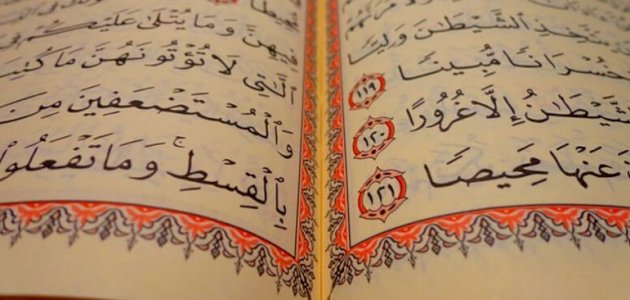 يَتَّخِذِ ٱلشَّيْطَـٰنَ وَلِيًّا
خُسْرَانًا مُّبِينًا ١١٩
ٱلشَّيْطَـٰنُ إِلَّا غُرُورًا ١٢٠
عَنْهَا مَحِيصًا ١٢١
فِيهِنَّ وَمَا يُتْلَىٰ عَلَيْكُمْ
ٱلَّـٰتِى لَا تُؤْتُونَهُنَّ مَا كُتِبَ
وَٱلْمُسْتَضْعَفِينَ مِنَ
بِٱلْقِسْطِ ۚ وَمَا تَفْعَلُوا۟